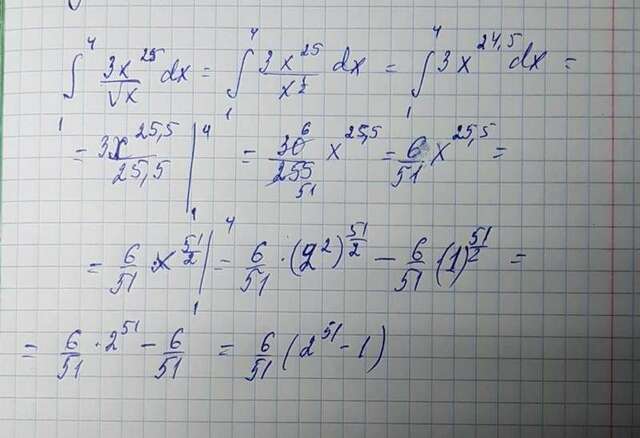 ∫₁⁴ 3x²⁵/√x dx = ∫₁⁴ 3x²⁵/x^(1/2) dx = ∫₁⁴ 3x^(24,5) dx =
= 3x^(25,5)/25,5 |₁⁴ = 30 6/255 51 x^(25,5) = 6/51 x^(25,5) =
= 6/51 · x^(51/2) |₁⁴ = 6/51 · (2²)^(51/2) − 6/51 (1)^(51/2) =
= 6/51 · 2^51 − 6/51 = 6/51 (2^51 − 1)